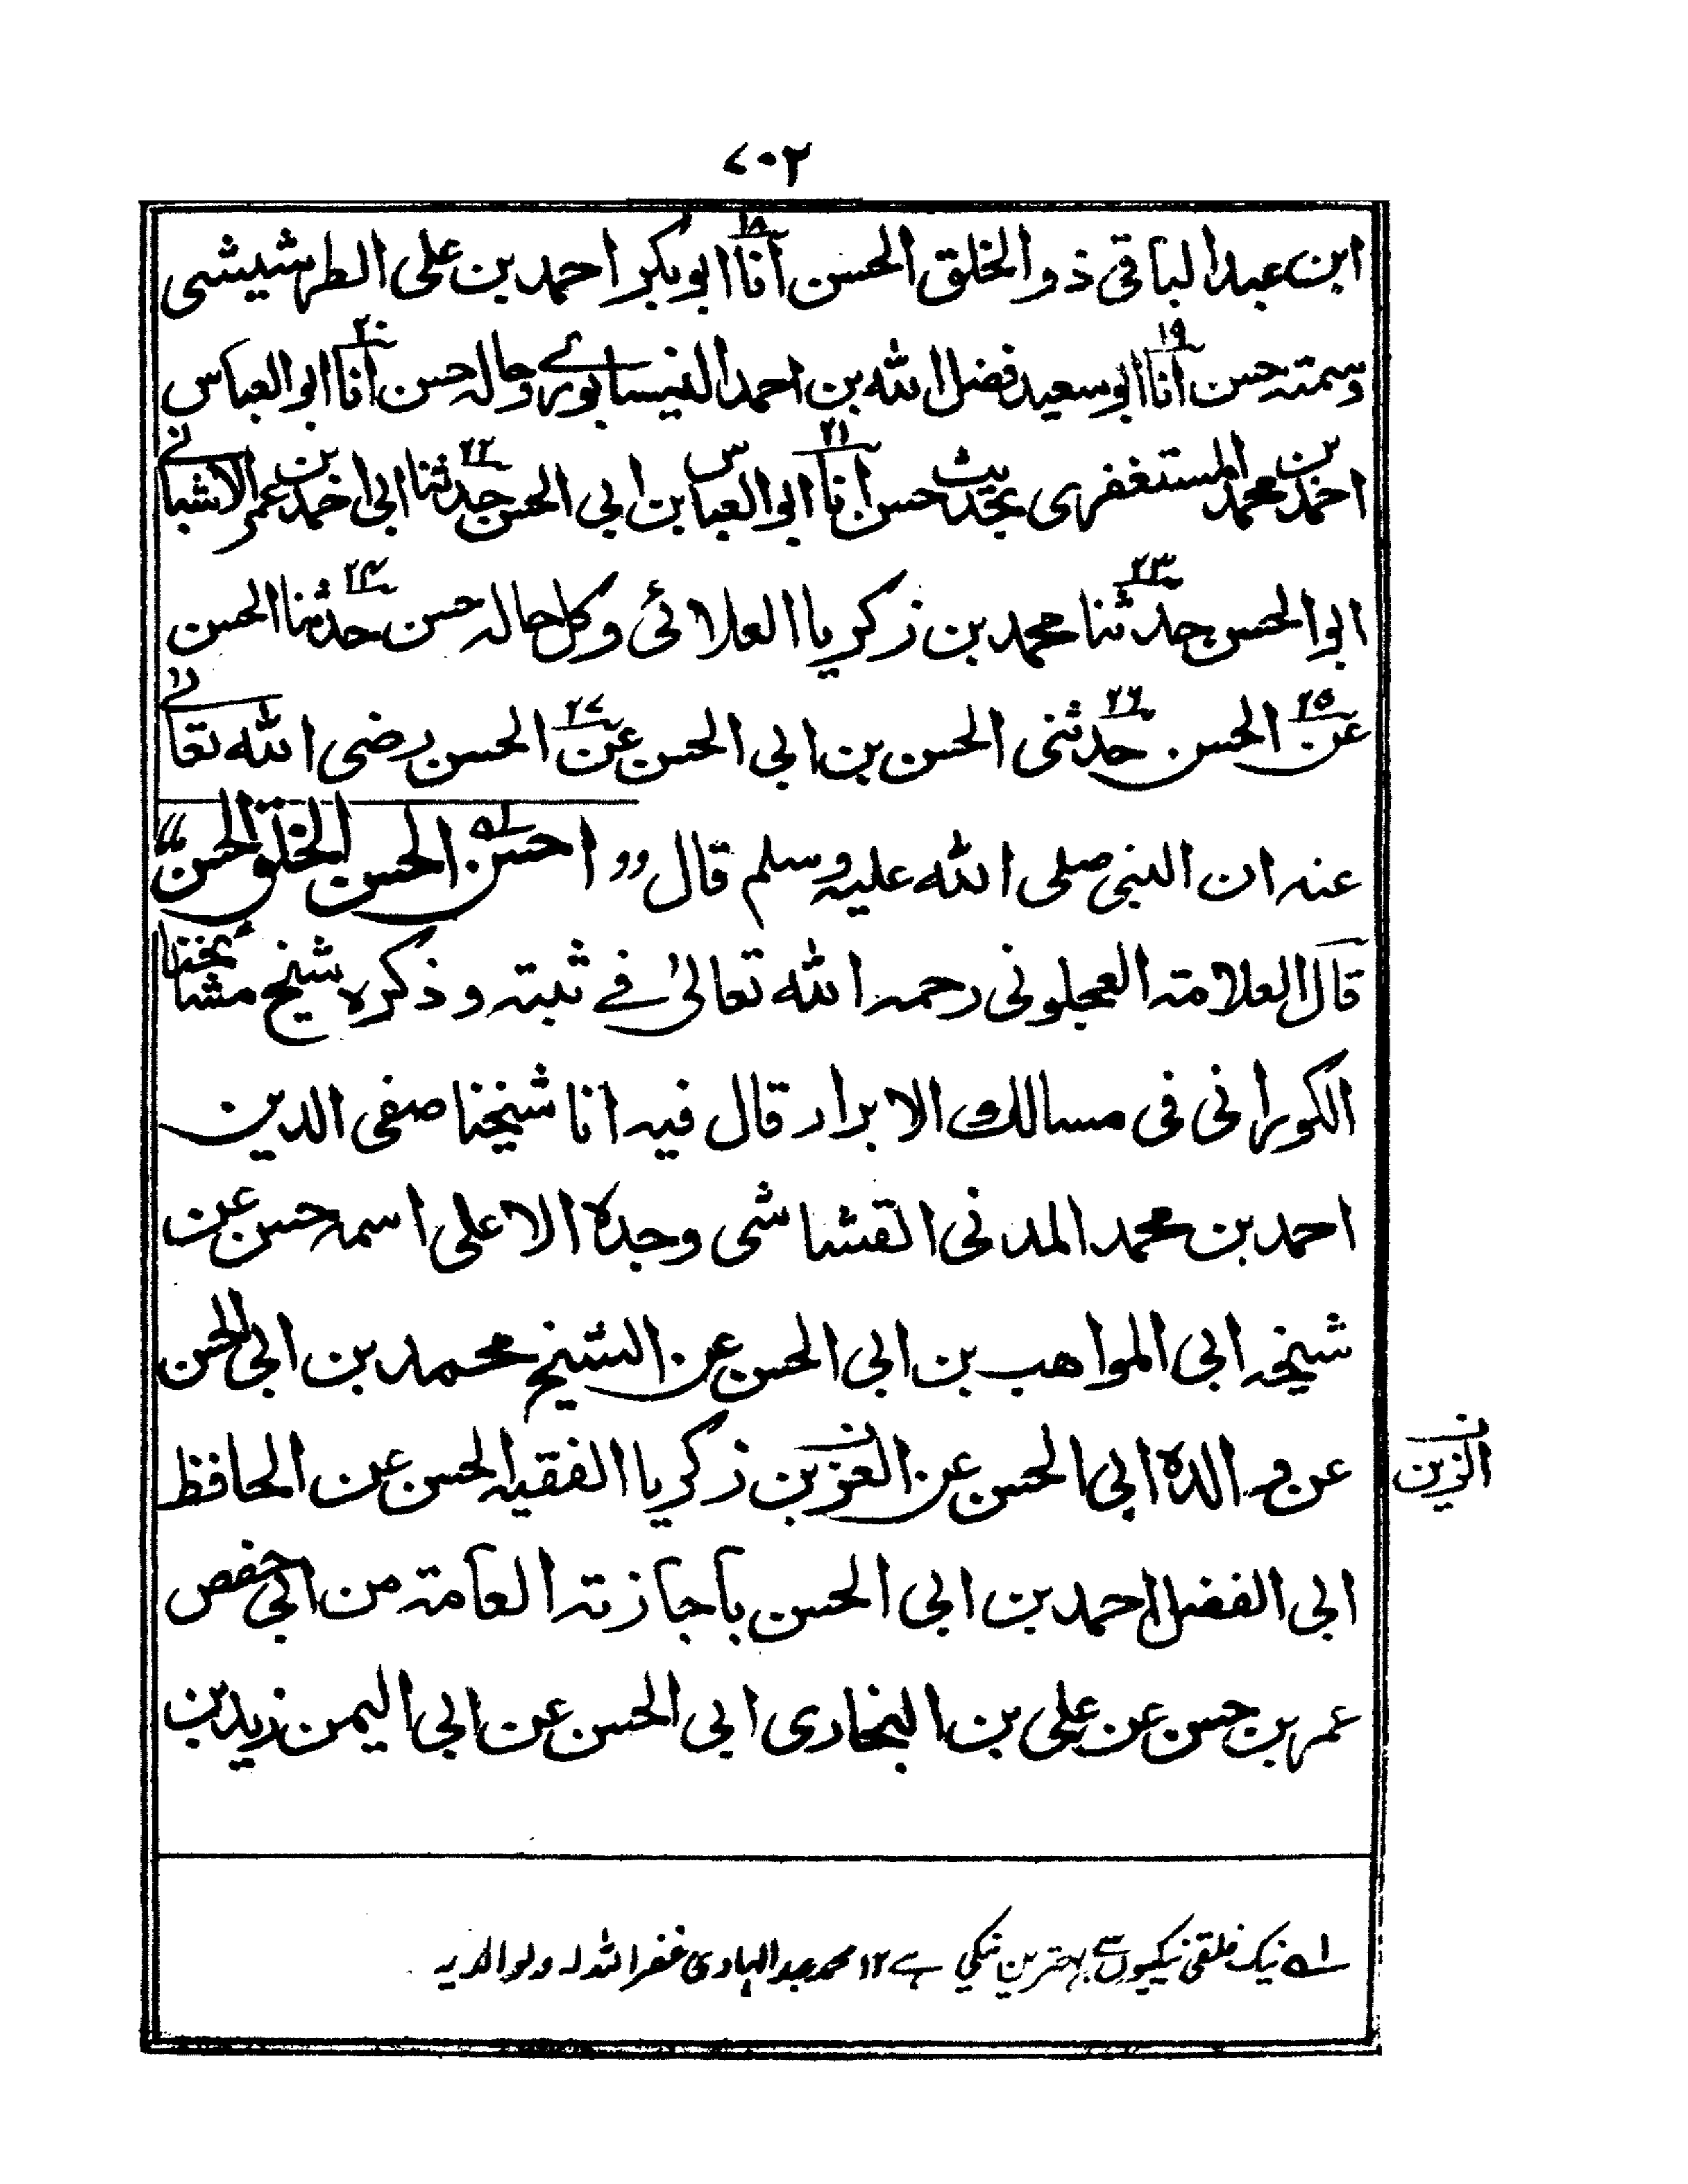 ٧٠٢
ابن عبد الباقی ذو الخلق الحسن انا ١٨ ابو بکر احمد بن علی الطرشیشی
وسمته حسن انا ١٩ ابو سعید فضل الله بن احمد النیسابوری وحاله حسن انا ٢٠ ابو العباس
احمد بن محمد المستغفری بحدیث حسن انا ٢١ ابو العباس بن ابی الحسن حدثنا ٢٢ ابی احمد بن عمر الاشبانی
ابو الحسن حدثنا ٢٣ محمد بن زکریا العلائی وکل حاله حسن حدثنا ٢٤ الحسن
عن ٢٥ الحسن حدثنی ٢٦ الحسن بن ابی الحسن عن ٢٧ الحسن رضی الله تعالی
عنه ان النبی صلی الله علیه وسلم قال “احسن الحسن الخلق الحسن”
قال العلامة العجلونی رحمه الله تعالیٰ فی ثبته و ذکره شیخ مشائخنا
الکورانی فی مسالك الابرار قال فیه انا شیخنا صفی الدین
احمد بن محمد المدنی القشاشی وجده الاعلی اسمه حسن عن
شیخه ابی المواهب بن ابی الحسن عن الشیخ محمد بن ابی الحسن
عن والده ابی الحسن عن العزبن زکریا الفقیه الحسن عن الحافظ
الزین
ابی الفضل احمد بن ابی الحسن باجازته العامة من ابی حفص
عمر بن حسن عن علی بن البخاری ابی الحسن عن ابی الیمن زید بن
لـ١ نیک خلقی نیکیوں سے بہترین نیکی ہے ١٢ محمد عبدالہادی غفر الله له ولوالدیه